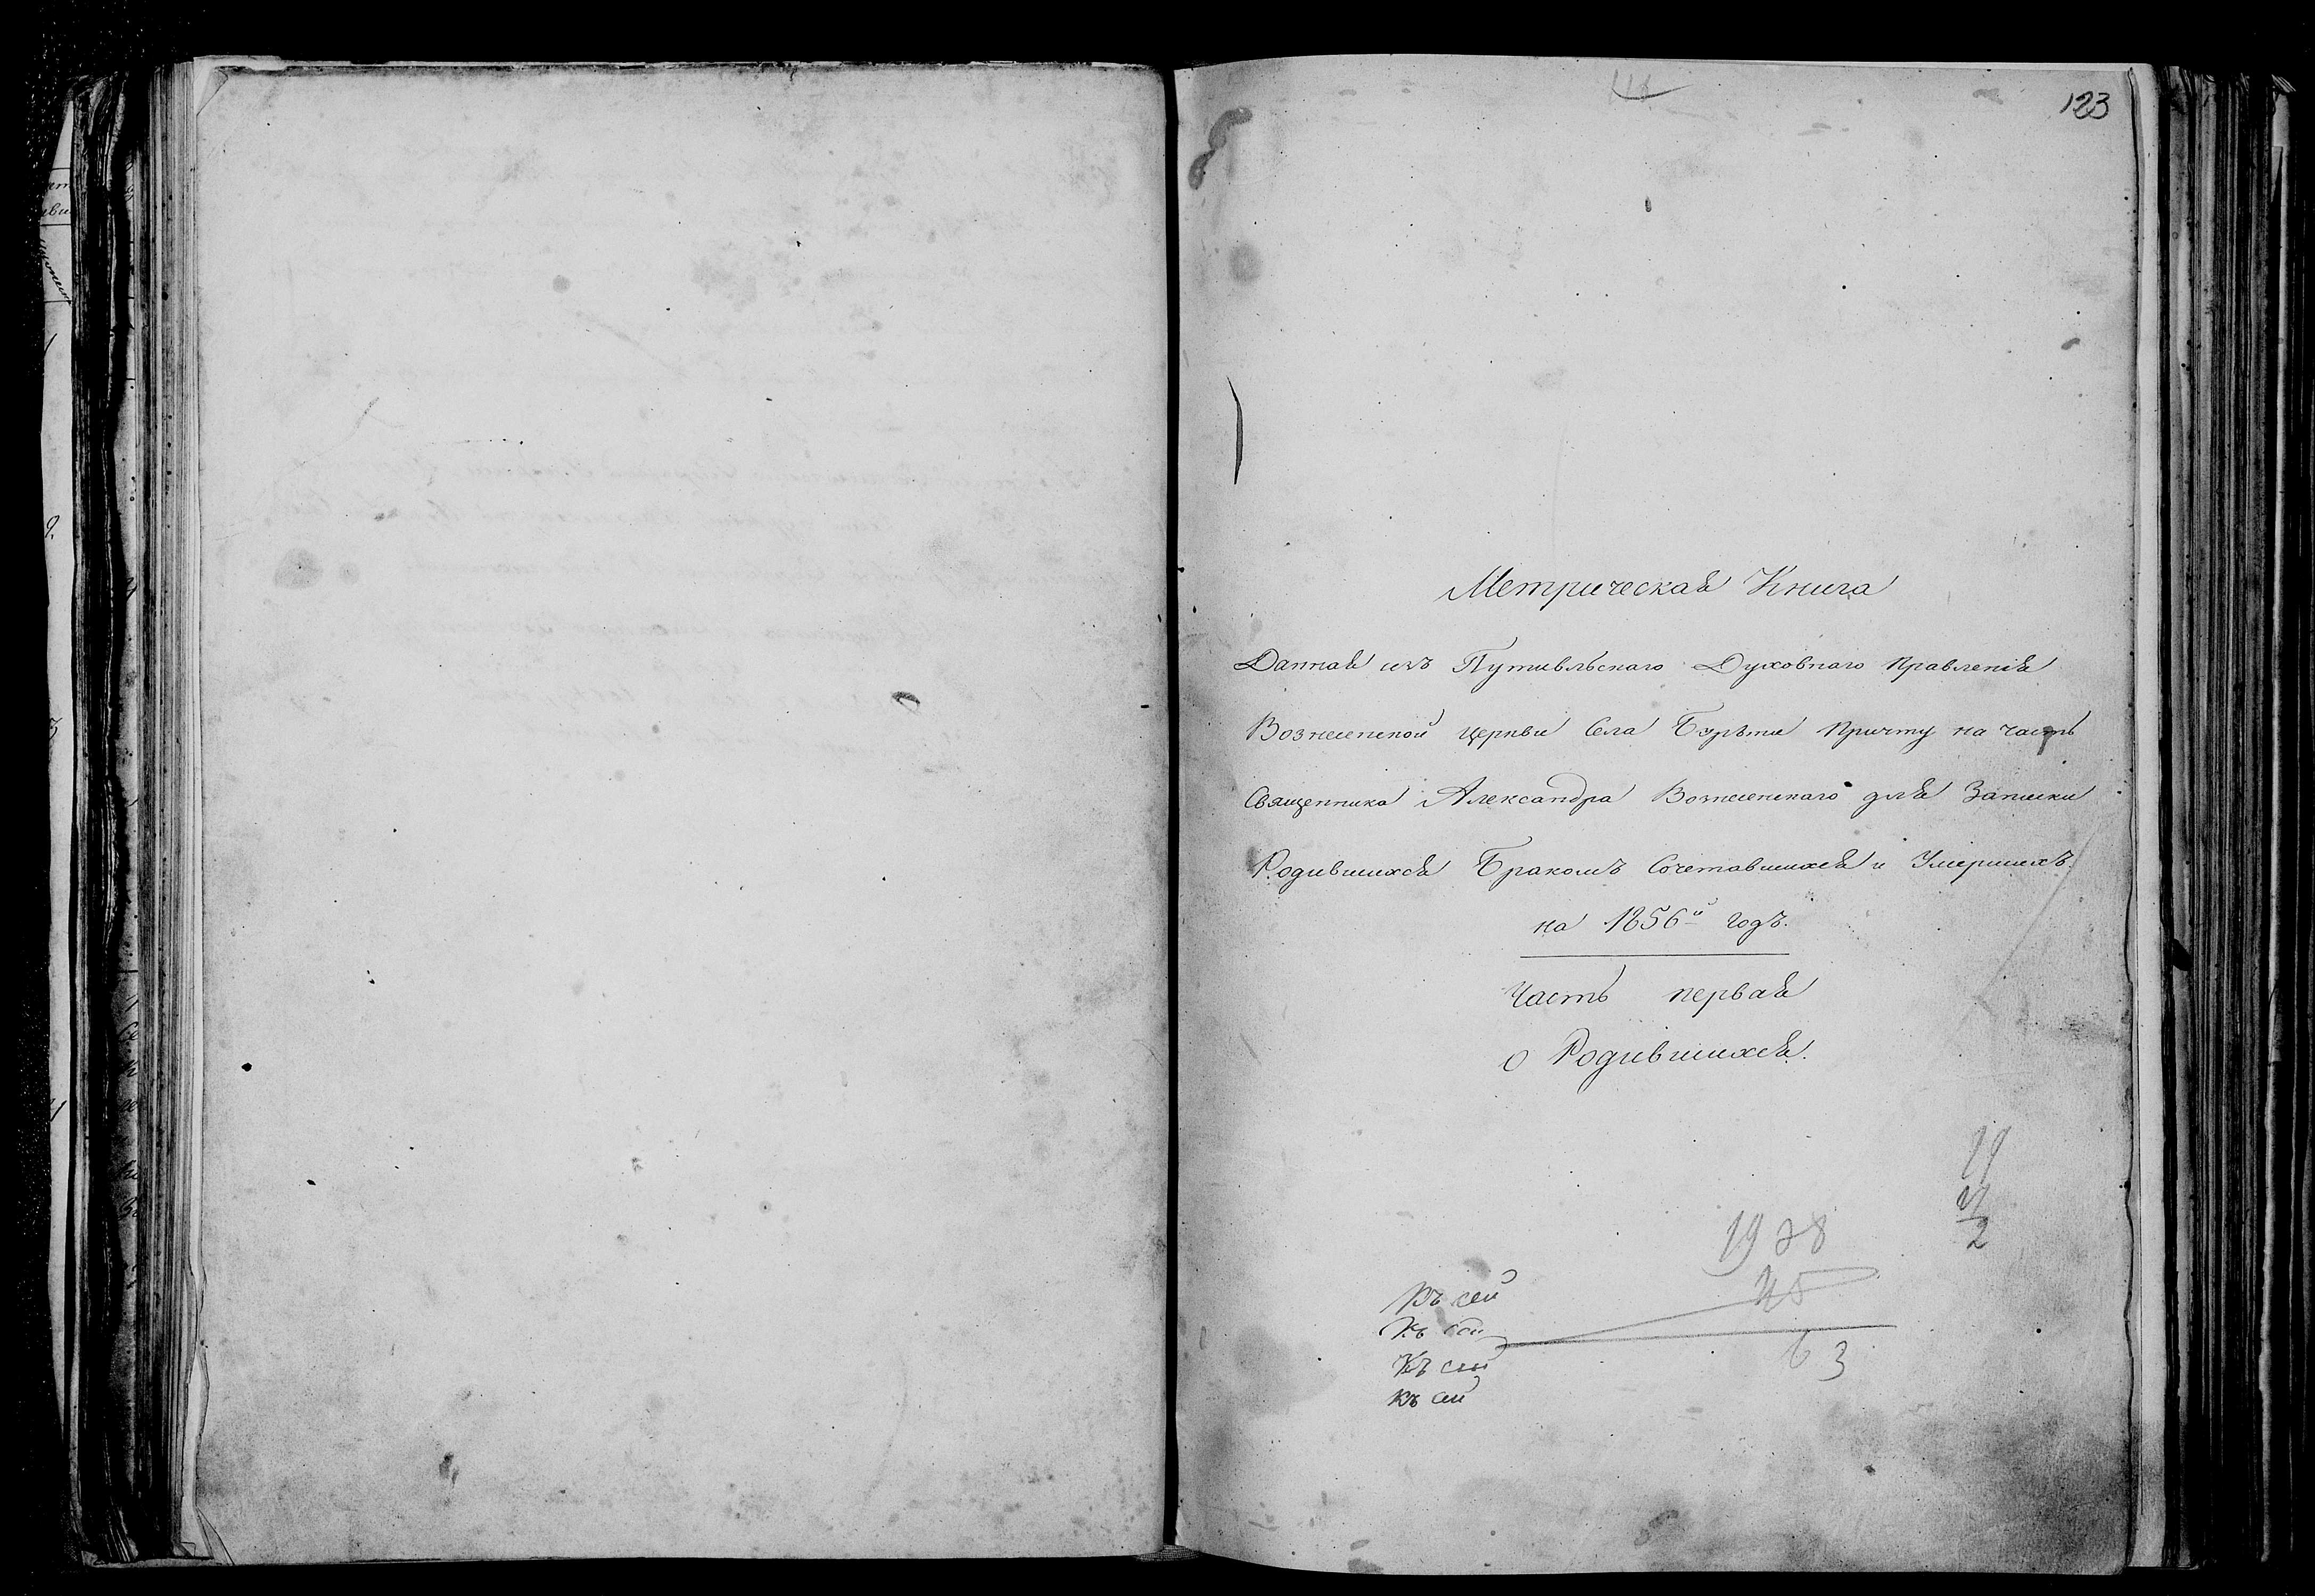 123
Метрическая Книга
Данная изъ Путивльскаго Духовнаго Правленія
Вознесенской церкви Села Бурыни Причту на часть
Священника Александра Вознесенскаго для Записки
Родившихся Бракомъ Сочетавшихся и Умершихъ.
на 1856й годъ.
Часть первая
о Родившихся.
19 28
2
63
Къ сей
Къ сей
Къ сей
Къ сей